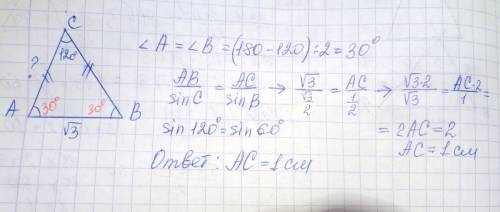 C
120°
?
A 30° 30° B
√3
∠A = ∠B = (180 - 120) ÷ 2 = 30°
AB/sinC = AC/sinB → √3/(√3/2) = AC/(1/2) → √3·2/√3 = AC·2/1 =
sin 120° = sin 60°
= 2AC = 2
AC = 1 см
Ответ: AC = 1 см